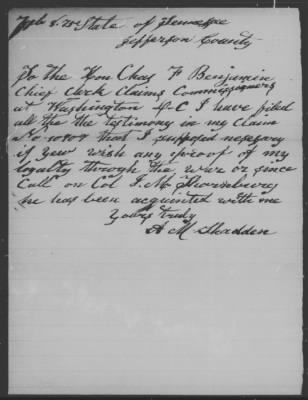 Feb State of Tennessee
Jefferson County
To the Hon Chas F Benjamin
Chief Clerk Claims Commissioners
at Washington D-C I have filed
all the the testimony in my claim
that I supposed necesary
if you wish any proof of my
loyalty through the war or since
Call on Col J. M. Thornburg
he has been acquinted with me
Yours truly
A M Shadden